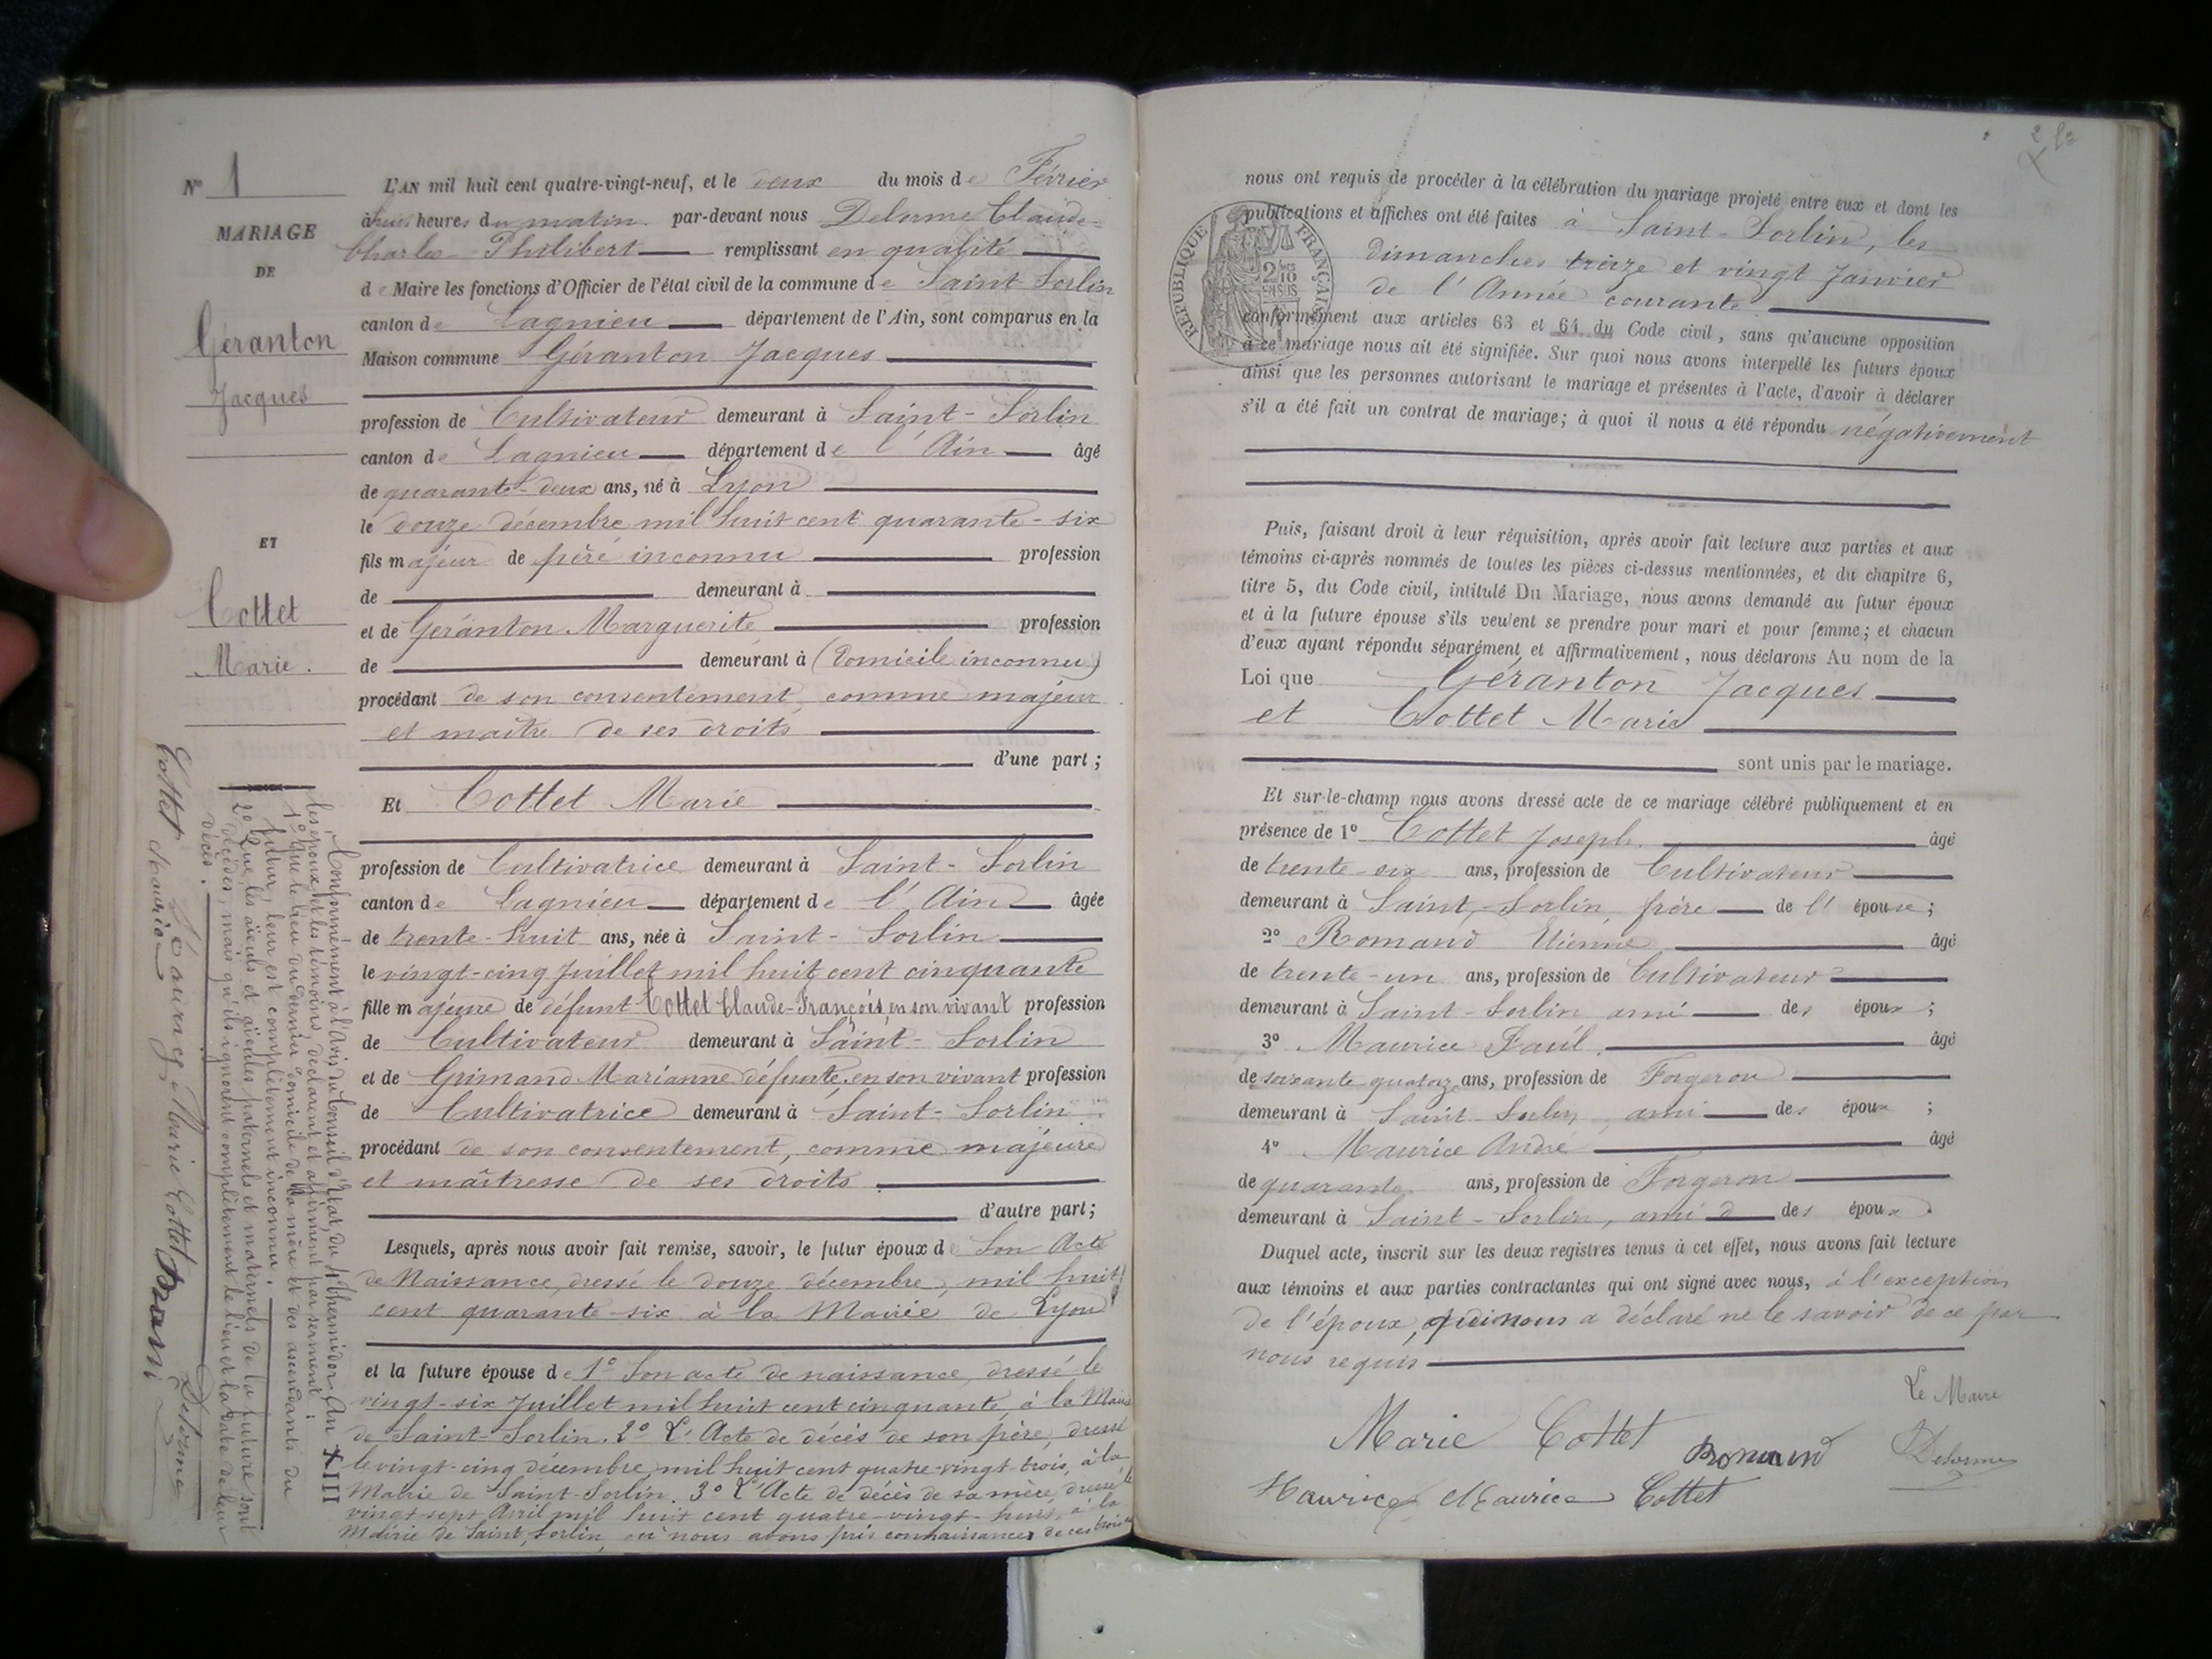 N° 1
MARIAGE
DE
Géranton
Jacques
ET
Cottet
Marie.
L'AN mil huit cent quatre-vingt-neuf, et le deux du mois de Février
à huit heures du matin par-devant nous Delorme Claude-
Charles-Philibert remplissant en qualité
de Maire les fonctions d'Officier de l'état civil de la commune de Saint Sorlin
canton de Lagnieu département de l'Ain, sont comparus en la
Maison commune Géranton Jacques
profession de Cultivateur demeurant à Saint-Sorlin
canton de Lagnieu département de l'Ain âgé
de quarante-deux ans, né à Lyon
le douze décembre mil huit cent quarante-six
fils majeur de père inconnu profession
de demeurant à
et de Géranton Marguerite profession
de demeurant à (Domicile inconnu)
procédant de son consentement, comme majeur
et maître de ses droits
d'une part;
Et Cottet Marie
profession de Cultivatrice demeurant à Saint-Sorlin
canton de Lagnieu département de l'Ain âgée
de trente-huit ans, née à Saint-Sorlin
le vingt-cinq Juillet mil huit cent cinquante
fille majeure de défunt Cottet Claude-François, en son vivant profession
de Cultivateur demeurant à Saint-Sorlin
et de Grimand Marianne défunte, en son vivant profession
de Cultivatrice demeurant à Saint-Sorlin
procédant de son consentement, comme majeure
et maîtresse de ses droits
d'autre part;
Lesquels, après nous avoir fait remise, savoir, le futur époux de Son Acte
de Naissance, dressé le douze décembre, mil huit
cent quarante-six à la Mairie de Lyon
et la future épouse de 1° Son acte de naissance, dressé le
vingt-six Juillet mil huit cent cinquante, à la Mairie
de Saint-Sorlin. 2° L'Acte de décès de son père, dressé
le vingt-cinq décembre, mil huit cent quatre-vingt trois, à la
Mairie de Saint-Sorlin. 3° L'Acte de décès de sa mère, dressé le
vingt-sept Avril mil huit cent quatre-vingt-huit, à la
Mairie de Saint-Sorlin, où nous avons pris connaissance de ces trois
Conformément à l'Avis du Conseil d'Etat, du 4 thermidor An XIII
les époux et les témoins, déclarent et affirment par serment:
1° Que le lieu du dernier domicile de la mère et des ascendants du
futur, leur est complètement inconnu.
2° Que les aïeuls et aïeules paternels et maternels de la future sont
décédés, mais qu'ils ignorent complètement le lieu et la date de leur
décès.
Maurice Marie Cottet Romand Delorme
Cottet Maurice
nous ont requis de procéder à la célébration du mariage projeté entre eux et dont les
publications et affiches ont été faites à Saint-Sorlin, les
dimanches treize et vingt Janvier
de l'Année courante
RÉPUBLIQUE FRANÇAISE
conformément aux articles 63 et 64 du Code civil, sans qu'aucune opposition
à ce mariage nous ait été signifiée. Sur quoi nous avons interpellé les futurs époux
ainsi que les personnes autorisant le mariage et présentes à l'acte, d'avoir à déclarer
s'il a été fait un contrat de mariage; à quoi il nous a été répondu négativement
Puis, faisant droit à leur réquisition, après avoir fait lecture aux parties et aux
témoins ci-après nommés de toutes les pièces ci-dessus mentionnées, et du chapitre 6,
titre 5, du Code civil, intitulé Du Mariage, nous avons demandé au futur époux
et à la future épouse s'ils veulent se prendre pour mari et pour femme; et chacun
d'eux ayant répondu séparément et affirmativement, nous déclarons Au nom de la
Loi que Géranton Jacques
et Cottet Marie
sont unis par le mariage.
Et sur-le-champ nous avons dressé acte de ce mariage célébré publiquement et en
présence de 1° Cottet Joseph. âgé
de trente-six ans, profession de Cultivateur
demeurant à Saint-Sorlin, frère de l'épouse;
2° Romand Etienne âgé
de trente-un ans, profession de Cultivateur
demeurant à Saint-Sorlin ami des époux;
3° Maurice Paul. âgé
de soixante quatorze ans, profession de Forgeron
demeurant à Saint-Sorlin, ami des époux;
4° Maurice André âgé
de quarante ans, profession de Forgeron
demeurant à Saint-Sorlin, ami des époux.
Duquel acte, inscrit sur les deux registres tenus à cet effet, nous avons fait lecture
aux témoins et aux parties contractantes qui ont signé avec nous, à l'exception
de l'époux, qui nous a déclaré ne le savoir de ce par
nous requis
Le Maire
Marie Cottet Romand Delorme
Maurice Maurice Cottet